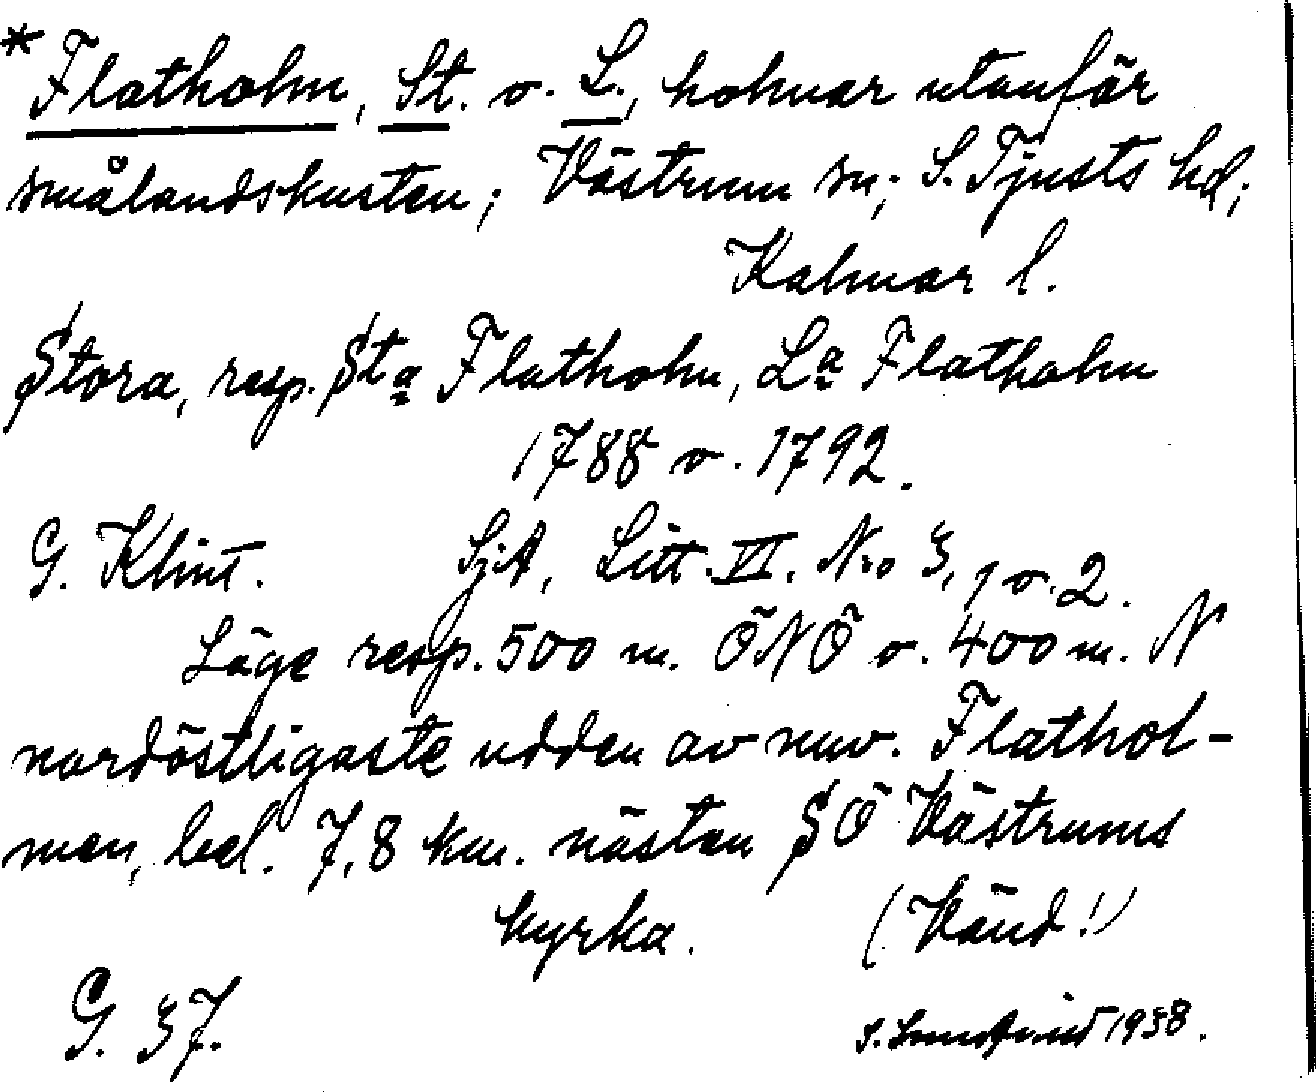 * Flatholm, St. o. L., holmar utanför
smålandskusten; Västrum sn; S. Tjusts hd;
Kalmar l.
Stora, resp. Sta Flatholm, La Flatholm
1788 o. 1792.
G. Klint. SjA, Litt. VI. No 3, 1 o. 2.
Läge resp. 500 m. ÖNÖ o. 400 m. N
nordöstligaste udden av nuv. Flathol-
men, bel. 7,8 km. nästan SÖ Västrums
kyrka. (Vänd!)
G. 37. 1938.